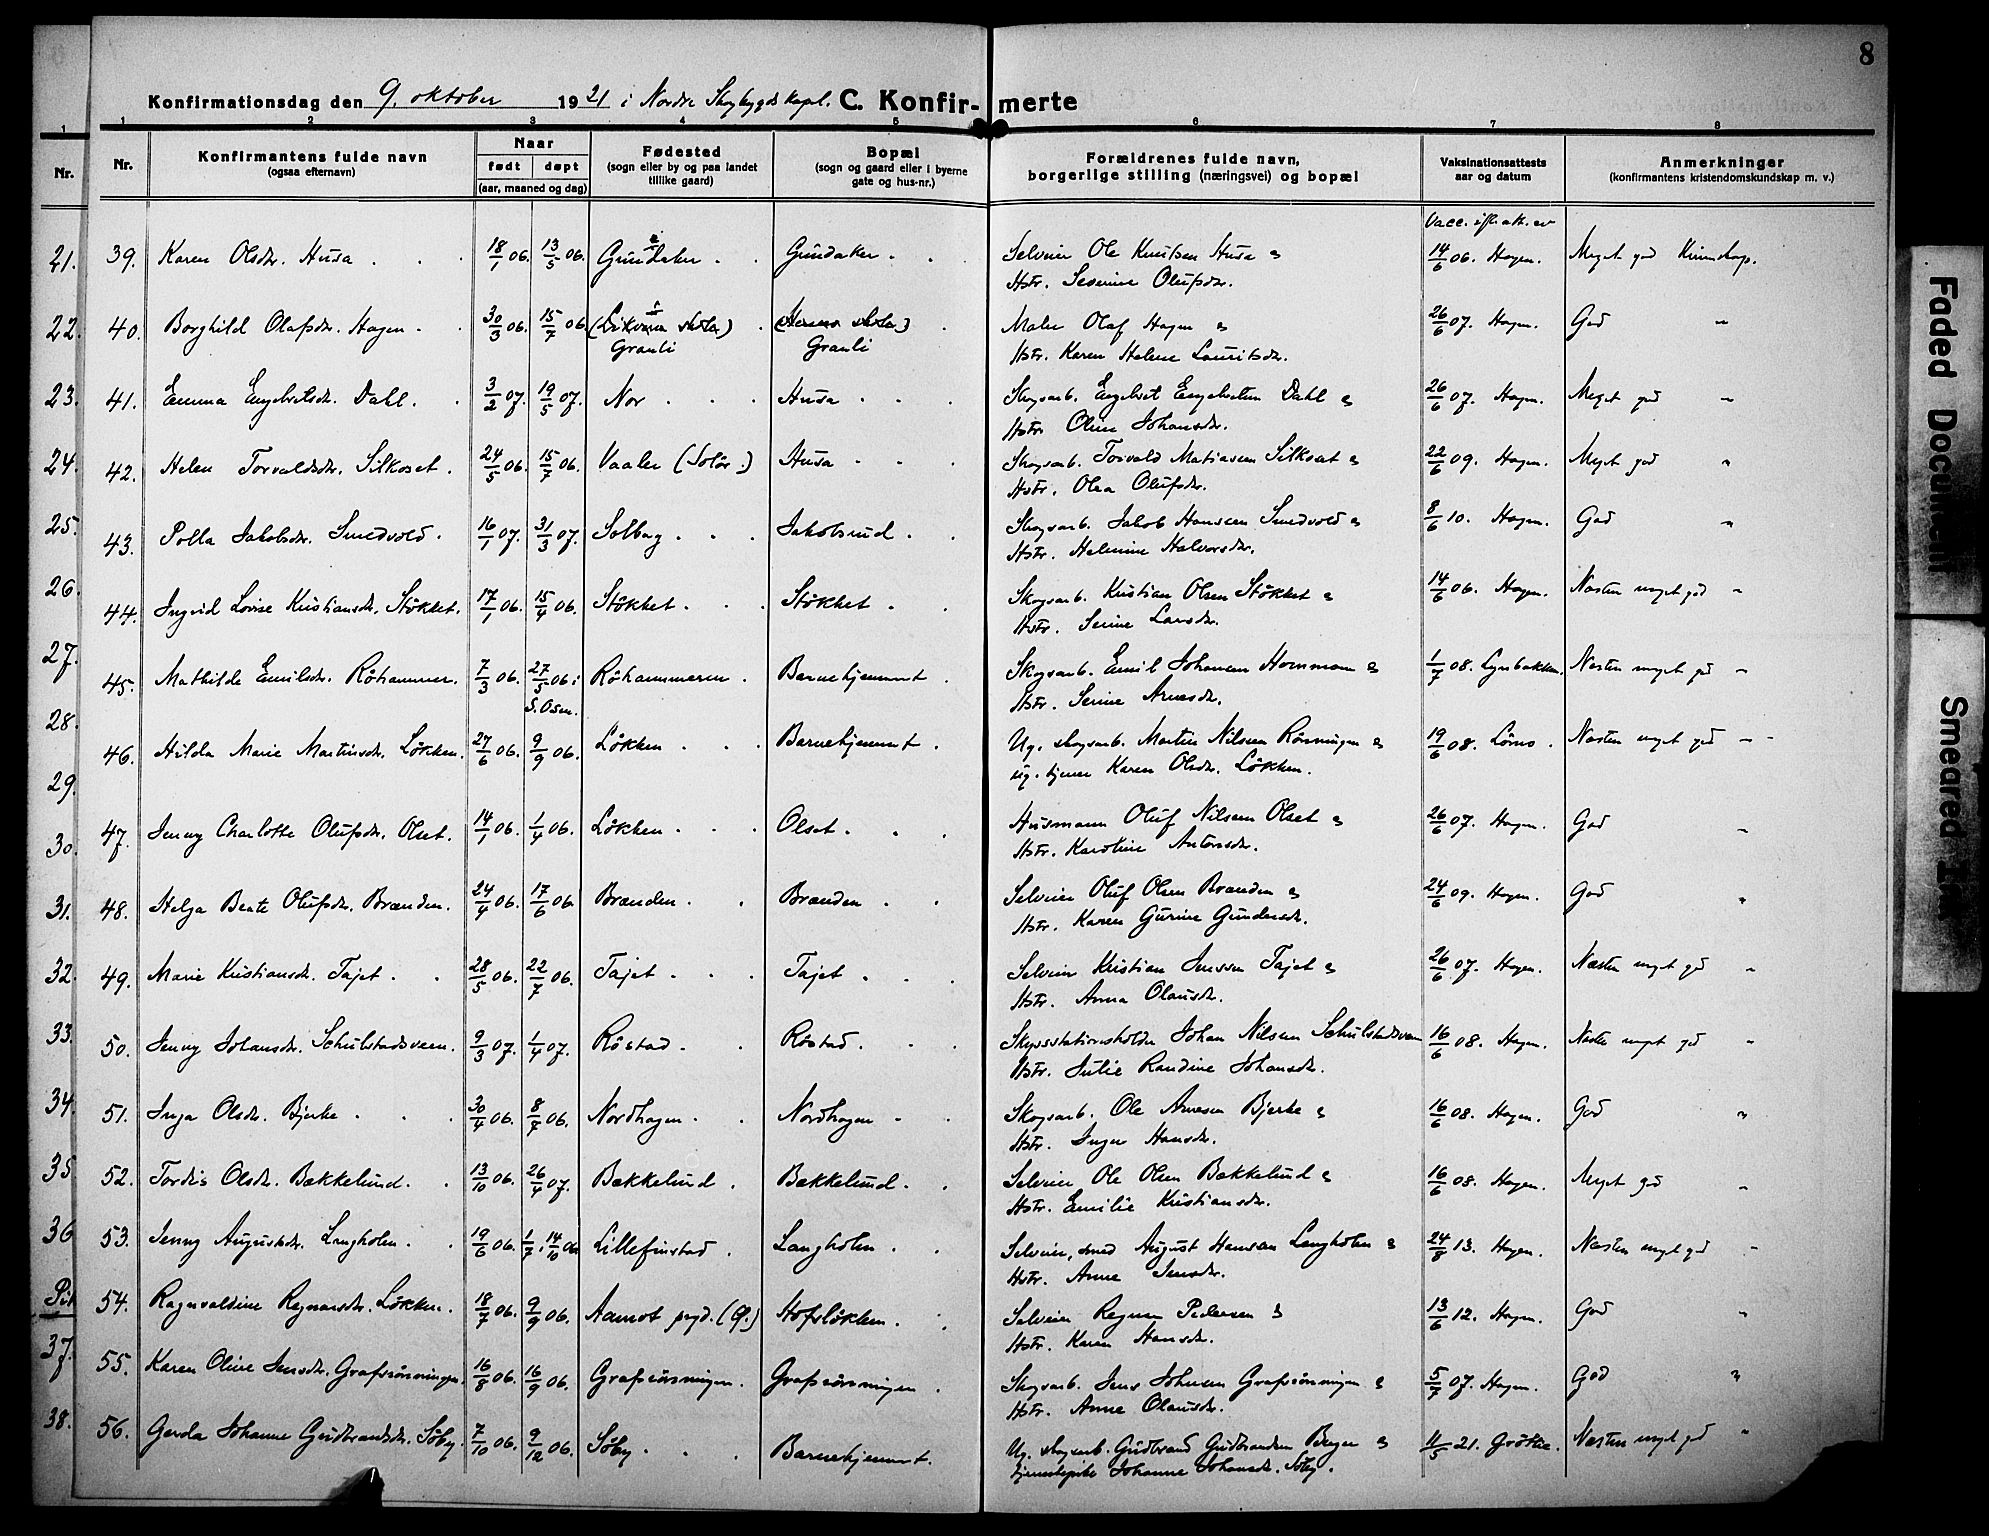 8
Konfirmationsdag den 9. oktober 1921 i Nordre Skogbygds kapel. C. Konfirmerte
1 1 2 3 4 5 6 7 8
Nr. Nr. Konfirmantens fulde navn (ogsaa efternavn) Naar født døpt (aar, maaned og dag) Fødested (sogn eller by og paa landet tillike gaard) Bopæl (sogn og gaard eller i byerne gate og hus-nr.) Forældrenes fulde navn, borgerlige stilling (næringsvei) og bopæl Vaksinationsattests aar og datum Anmerkninger (konfirmantens kristendomskundskap m. v.)
Vacc. ifl. att. av
21. 39. Karen Olsdr. Husa 18/1 06. 13/5 06. Gundaker Gundaker Selveier Ole Knutsen Husa og 14/6 06. Hagen. Meget god Kunnskap.
Hstr. Severine Olufsdr.
22. 40. Borghild Olafsdr. Hagen 30/3 06. 15/7 06. Maler Olaf Hagen og 26/6 07. Hagen. God "
Granli Granli Hstr. Karen Helene Lauritsdr.
23. 41. Emma Engebretsdr. Dahl. 3/2 07. 19/5 07. Nor Husa Skogsarb. Engebret Engebretsen Dahl og 26/6 07. Hagen. Meget god "
Hstr. Oline Johansdr.
24. 42. Helen Torvaldsdr. Silkoset. 24/5 06. 15/7 06. Vaaler (Solør) Husa Skogsarb. Torvald Matiasen Silkoset og 22/6 09. Hagen. Meget god "
Hstr. Olea Olufsdr.
25. 43. Polla Jakobsdr. Smedvold. 16/1 07. 31/3 07. Solbag Jakobsrud Skogsarb. Jakob Hansen Smedvold og 8/6 10. Hagen. God "
Hstr. Helmine Halvorsdr.
26 44. Ingrid Lovise Kristiansdr. Støkket. 17/1 06. 15/4 06. Støkket Støkket Skogsarb. Kristian Olsen Støkket og 14/6 06. Hagen. Næsten meget god "
Hstr. Serine Larsdr.
27. 45. Mathilde Emilsdr. Røhammer. 7/3 06. 27/5 06 i S. Osen. Røhammeren Barnehjemmet Skogsarb. Emil Johansen og 1/7 08. Lynbakken. Næsten meget god "
Hstr. Serine Arnesdr.
28. 46. Hilda Marie Martinsdr. Løkken. 27/6 06. 9/9 06. Løkken Barnehjemmet Ug. skogsarb. Martin Nilsen Rønningen og 19/6 08. Næsten meget god "
ug. tjener Karen Olsdr. Løkken.
29.
30. 47. Jenny Charlotte Olufsdr. Olset. 14/1 06. 1/4 06. Løkken Olset Husmann Oluf Nilsen Olset og 26/6 07. Hagen. God "
Hstr. Karoline Antonsdr.
31. 48. Helga Beate Olufsdr. Brænden. 24/4 06. 17/6 06 Brænden Brænden Selveier Oluf Olsen Brænden og 24/6 09. Hagen. God "
Hstr. Karen Gurine Gundersdr.
32. 49. Marie Kristiansdr. Tajet 28/5 06. 22/7 06. Tajet Tajet Selveier Kristian Jensen Tajet og 26/6 07. Hagen. Næsten meget god "
Hstr. Anna Olausdr.
33. 50. Jenny Johansdr. Schulstadsveen. 9/3 07. 1/4 07. Røstad Røstad Skysstationsholder Johan Nilsen Schulstadsveen 16/6 08. Hagen. Næsten meget god "
Hstr. Julie Randine Johansdr.
34. 51. Inga Olsdr. Bjerke 30/4 06. 8/7 06. Nordhagen Nordhagen Skogsarb. Ole Arnesen Bjerke og 16/6 08. Hagen. God "
Hstr. Inger Hansdr.
35 52. Tordis Olsdr. Bækkelund. 13/10 06. 26/4 07. Bækkelund Bækkelund Selveier Ole Olsen Bækkelund og 16/6 08. Hagen. Meget god "
Hstr. Emilie Kristiansdr.
36 53. Jenny Augustsdr. Langholen. 19/6 06. 1/7, 14/10 06 Lillefinstad Langholen Selveier, smed August Hansen Langholen og 24/8 13. Hagen. Næsten meget god "
Hstr. Anne Jensdr.
54. Ragnvaldine Regnarsdr. Løkken. 18/7 06. 9/9 06. Aamot prgd. Hofsløkken Selveier Regnar Pedersen og 13/6 12. Hagen. God "
Hstr. Karen Hansdr.
37. 55. Karen Oline Jensdr. Grafsrønningen. 16/8 06. 16/9 06. Grafsrønningen. Grafsrønningen Skogsarb. Jens Johnsen Grafsrønningen og 5/7 07. Hagen. God "
Hstr. Anne Olausdr.
38. 56. Gerda Johanne Gudbrandsdr. Søby. 7/10 06. 9/12 06. Søby Barnehjemmet. Ug. skogsarb. Gudbrand Gudbrandsen Berger og 11/5 21. Grøttie. Næsten meget god "
Johanne Johansdr. Søby.
Faded Document
Smeared Ink